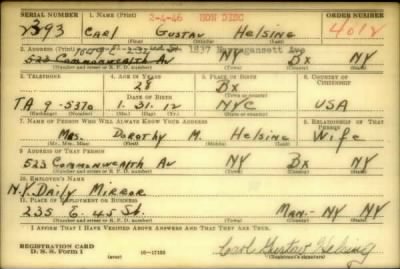 SERIAL NUMBER 1. NAME (Print) 2-4-46 HON DISC ORDER NUMBER
2393 CARL GUSTAV HELSING 4012
(First) (Middle) (Last)
2. ADDRESS (Print) 1837 Ave
523 COMMONWEALTH AV NY BX NY
(Number and street or R. F. D. number) (Town) (County) (State)
3. TELEPHONE 4. AGE IN YEARS 5. PLACE OF BIRTH 6. COUNTRY OF CITIZENSHIP
28 BX
DATE OF BIRTH (Town or county)
TA 9-5370 1. 31. 12 NYC USA
(Exchange) (Number) (Mo.) (Day) (Yr.) (State or country)
7. NAME OF PERSON WHO WILL ALWAYS KNOW YOUR ADDRESS 8. RELATIONSHIP OF THAT PERSON
MRS. DOROTHY M. HELSING WIFE
(Mr., Mrs., Miss) (First) (Middle) (Last)
9. ADDRESS OF THAT PERSON
523 COMMONWEALTH AV NY BX NY
(Number and street or R. F. D. number) (Town) (County) (State)
10. EMPLOYER'S NAME
N.Y. DAILY MIRROR
11. PLACE OF EMPLOYMENT OR BUSINESS
235 E. 45 St. MAN- NY NY
(Number and street or R. F. D. number) (Town) (County) (State)
I AFFIRM THAT I HAVE VERIFIED ABOVE ANSWERS AND THAT THEY ARE TRUE.
REGISTRATION CARD
D. S. S. FORM 1 (over) 16-17105 Carl Gustav Helsing
(Registrant's signature)